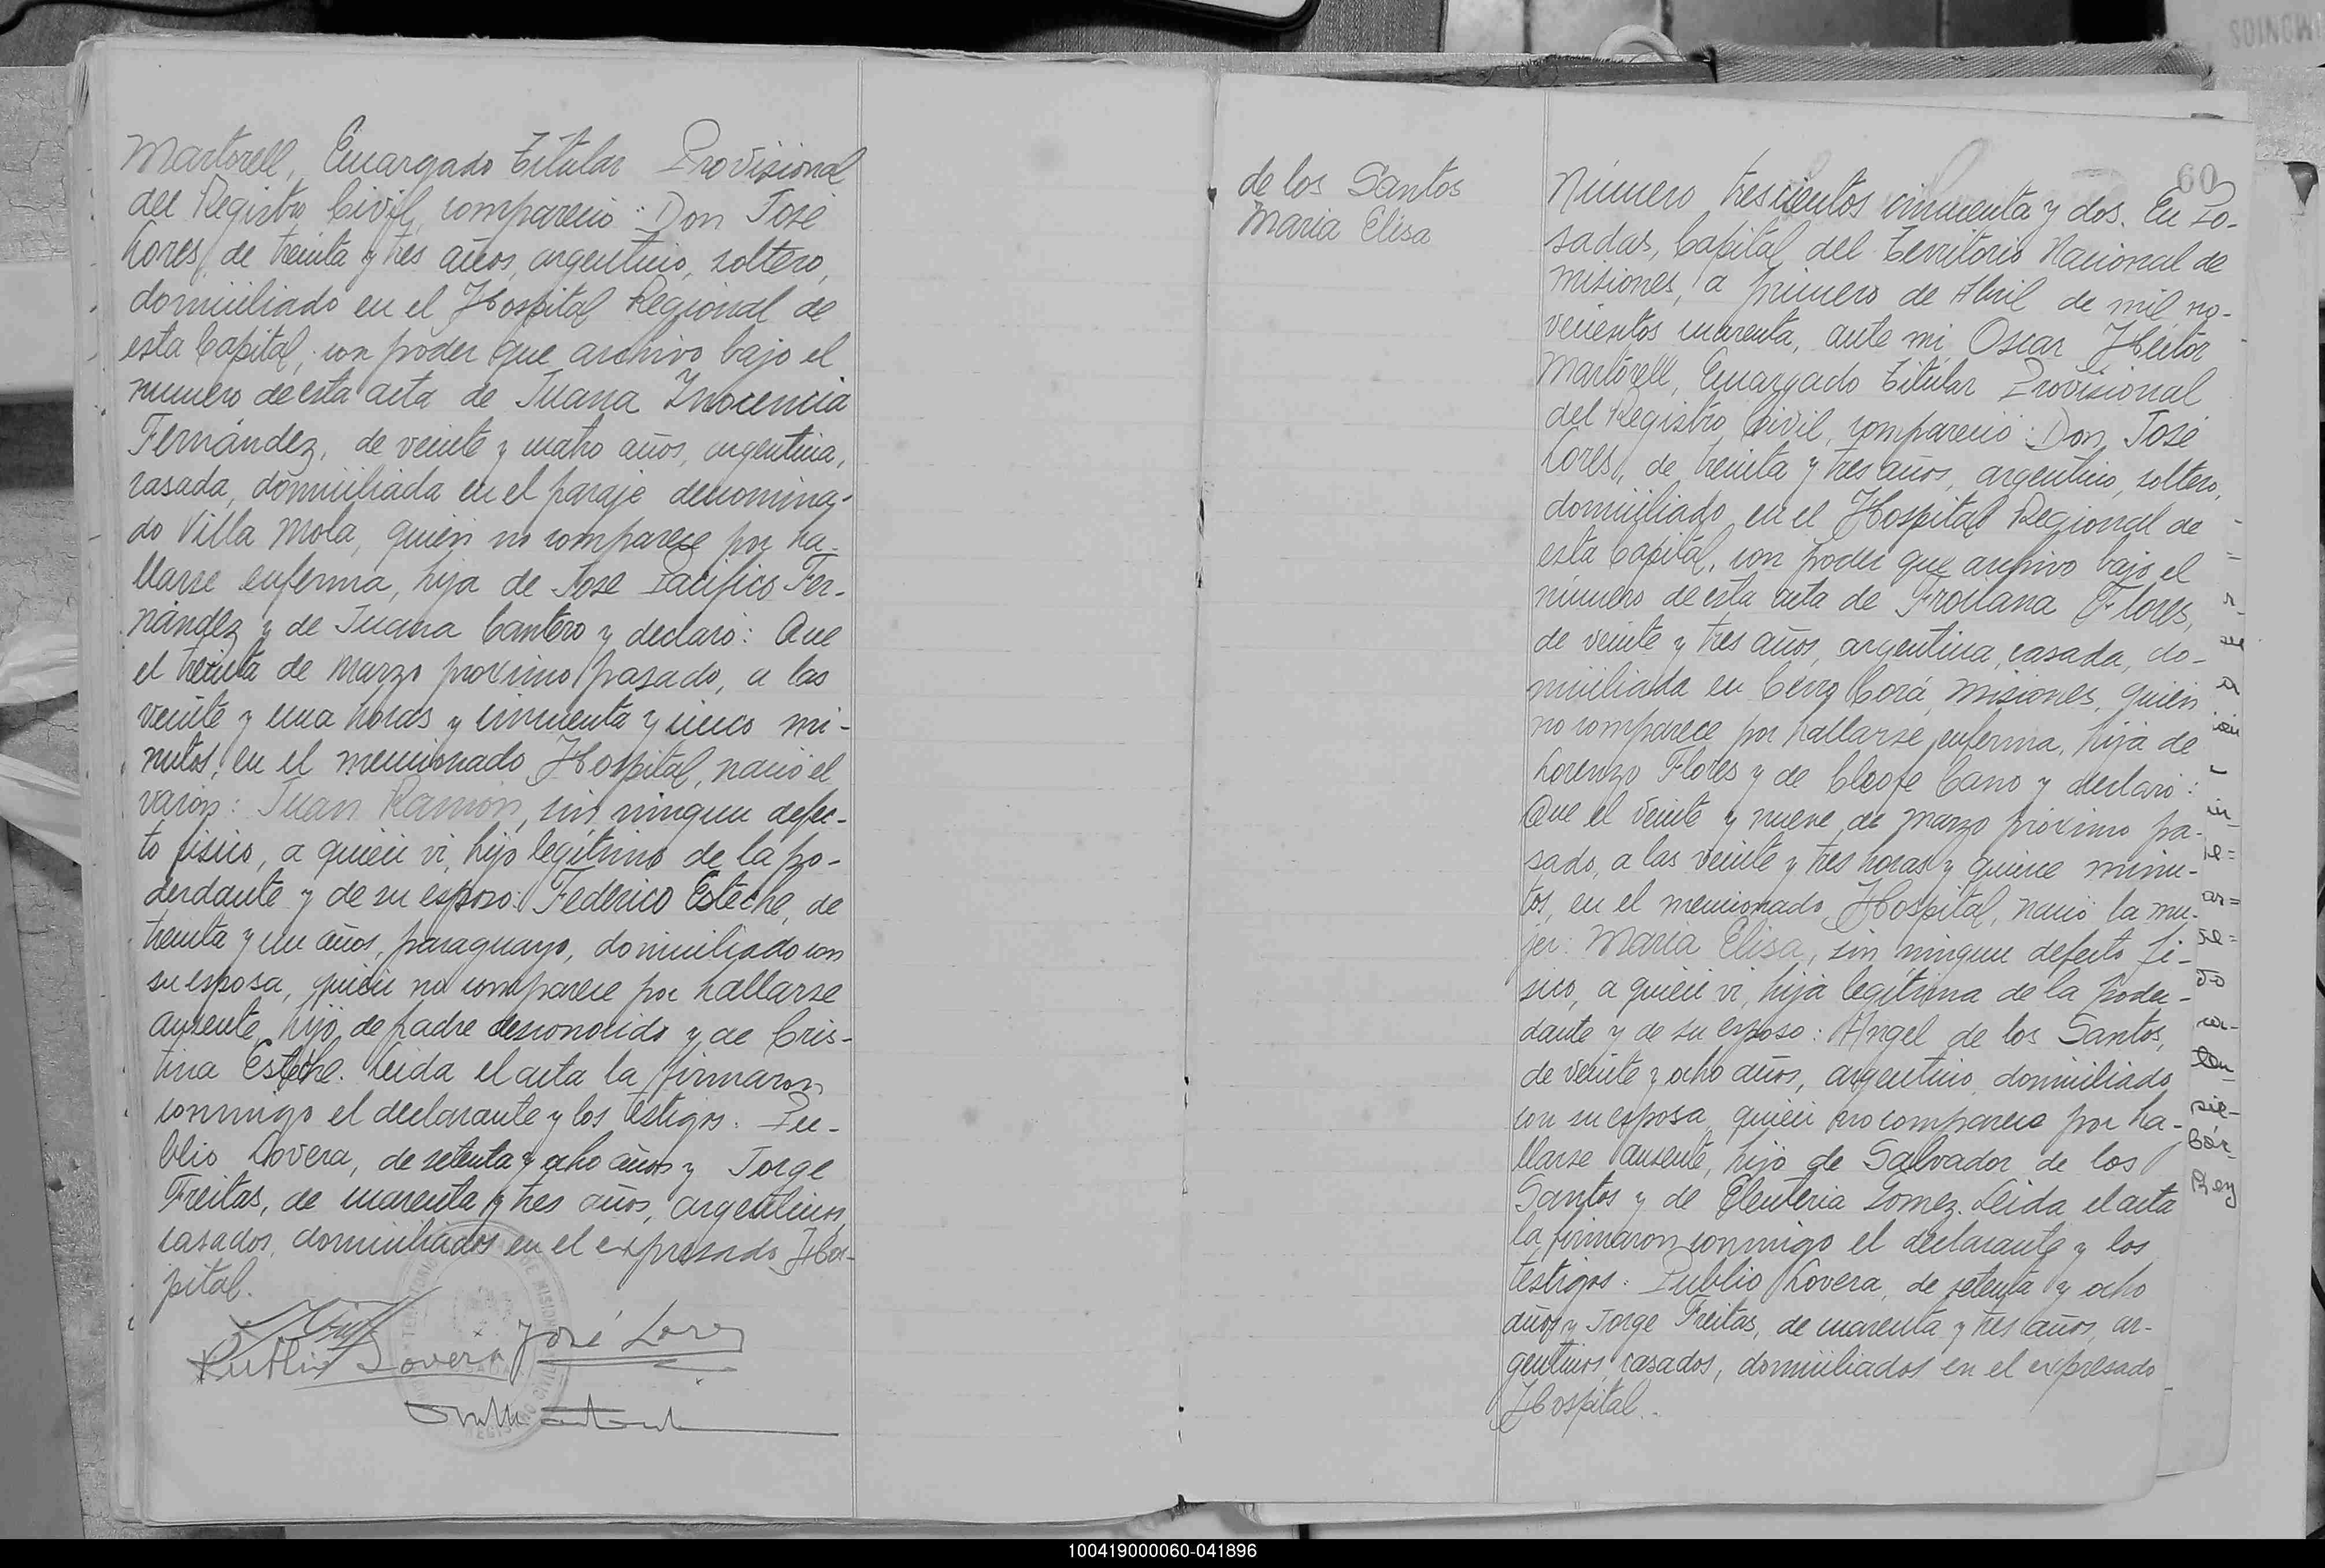 Martorell, Encargado Titular Provisional
del Registro Civil, compareció: Don José
Lores, de treinta y tres años, argentino, soltero,
domiciliado en el Hospital Regional de
esta Capital, con poder que archivo bajo el
numero de esta acta de Juana Inocencia
Fernández, de veinte y cuatro años, argentina,
casada, domiciliada en el paraje denomina-
do Villa Mola, quien no comparece por ha-
llarse enferma, hija de José Pacífico Fer-
nández y de Juana Cantero y declaró: Que
el treinta de Marzo próximo pasado, a las
veinte y una horas y cincuenta y cinco mi-
nutos, en el mencionado Hospital, nació el
varón: Juan Ramón, sin ningun defec-
to físico, a quien vi, hijo legítimo de la po-
derdante y de su esposo: Federico Esteche, de
treinta y un años, paraguayo, domiciliado con
su esposa, quien no comparece por hallarse
ausente, hijo de padre desconocido y de Cris-
tina Esteche. Leida el acta la firmaron
conmigo el declarante y los testigos: Pu-
blio Lovera, de setenta y ocho años y Jorge
Freitas, de cuarenta y tres años, argentinos,
casados, domiciliados en el expresado Hos-
pital.
José Lores
Publio Lovera
de los Santos
Maria Elisa
60
Número trescientos cincuenta y dos. En Po-
sadas, Capital del Territorio Nacional de
Misiones, a primero de Abril de mil no-
vecientos cuarenta, ante mi Oscar Héctor
Martorell, Encargado Titular Provisional
del Registro Civil, compareció: Don José
Lores, de treinta y tres años, argentino, soltero,
domiciliado en el Hospital Regional de
esta Capital, con poder que archivo bajo el
número de esta acta de Froilana Flores,
de veinte y tres años, argentina, casada, do-
miciliada en Cerro Corá, Misiones, quien
no comparece por hallarse enferma, hija de
Lorenzo Flores y de Cleofe Cano y declaró:
Que el veinte y nueve de Marzo próximo pa-
sado, a las veinte y tres horas y quince minu-
tos, en el mencionado Hospital, nació la mu-
jer: Maria Elisa, sin ningun defecto fí-
sico, a quien vi, hija legítima de la poder-
dante y de su esposo: Angel de los Santos,
de veinte y ocho años, argentino, domiciliado
con su esposa, quien no comparece por ha-
llarse ausente, hijo de Salvador de los
Santos y de Eleuteria Gomez. Leida el acta
la firmaron conmigo el declarante y los
testigos: Publio Lovera, de setenta y ocho
años y Jorge Freitas, de cuarenta y tres años, ar-
gentinos, casados, domiciliados en el expresado
Hospital.
100419000060-041896